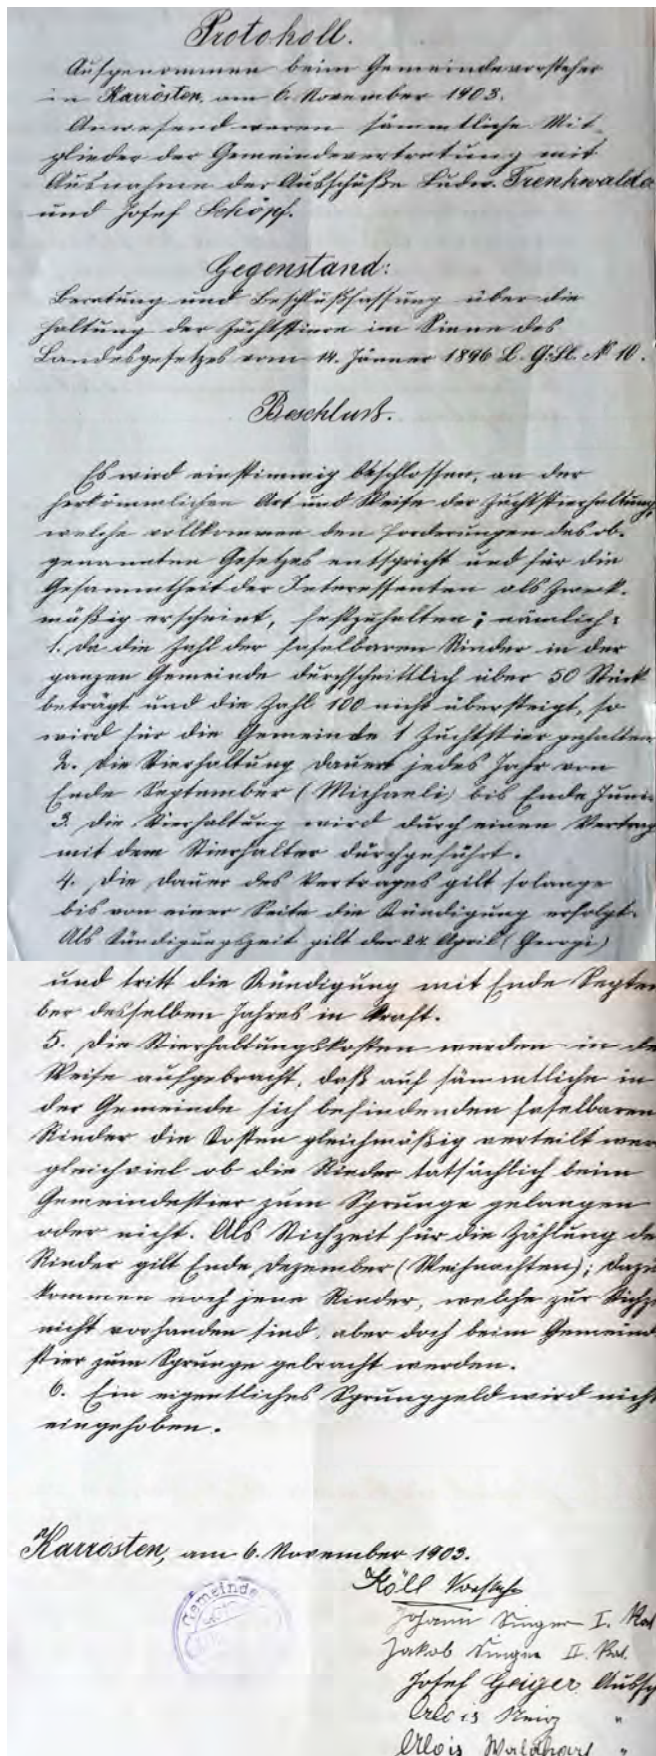 Protokoll.
Aufgenommen beim Gemeindevorsteher
in Karrösten, am 6. November 1903.
Anwesend waren sämmtliche Mit-
glieder der Gemeindevertretung mit
Ausnahme der Ausschüße Ludw. Trenkwalde
und Josef Schöpf.
Gegenstand:
Beratung und Beschlußfassung über die
Haltung der Zuchtstiere im Sinne des
Landesgesetzes vom 14. Jänner 1896 L. G. Bl. № 10.
Beschluß.
Es wird einstimmig beschlossen, an der
herkömmlichen Art und Weise der Zuchtstierhaltung,
welche vollkommen den Forderungen des ob-
genannten Gesetzes entspricht und für die
Gesammtheit der Interessenten als zweck-
mäßig erscheint, festzuhalten; nämlich:
1. Da die Zahl der faselbaren Rinder in der
ganzen Gemeinde durchschnittlich über 50 Stück
beträgt und die Zahl 100 nicht übersteigt, so
wird für die Gemeinde 1 Zuchtstier gehalten
2. Die Stierhaltung dauert jedes Jahr von
Ende September (Michaeli) bis Ende Juni.
3. Die Stierhaltung wird durch einen Vertrag
mit dem Stierhalter durchgeführt.
4. Die Dauer des Vertrages gilt solange
bis von einer Seite die Kündigung erfolgt.
Als Kündigungszeit gilt der 24. April (Georgi)
und tritt die Kündigung mit Ende Septem
ber desselben Jahres in Kraft.
5. Die Stierhaltungskosten werden in de
Weise aufgebracht, daß auf sämmtliche in
der Gemeinde sich befindenden faselbaren
Rinder die Kosten gleichmäßig verteilt wer
gleichviel ob die Rinder tatsächlich beim
Gemeindestier zum Sprunge gelangen
oder nicht. Als Stichzeit für die Zählung de
Rinder gilt Ende Dezember (Weihnachten); dazu
kommen noch jene Rinder, welche zur Stichz
nicht vorhanden sind, aber doch beim Gemeind
stier zum Sprunge gebracht werden.
6. Ein eigentliches Sprunggeld wird nicht
eingehoben.
Karrösten, am 6. November 1903.
Gemeinde
Köll Vorsteher
Johann Singer I. Rat
Jakob Singer II. Rat.
Josef Geiger Aussch
Alois "
Alois "